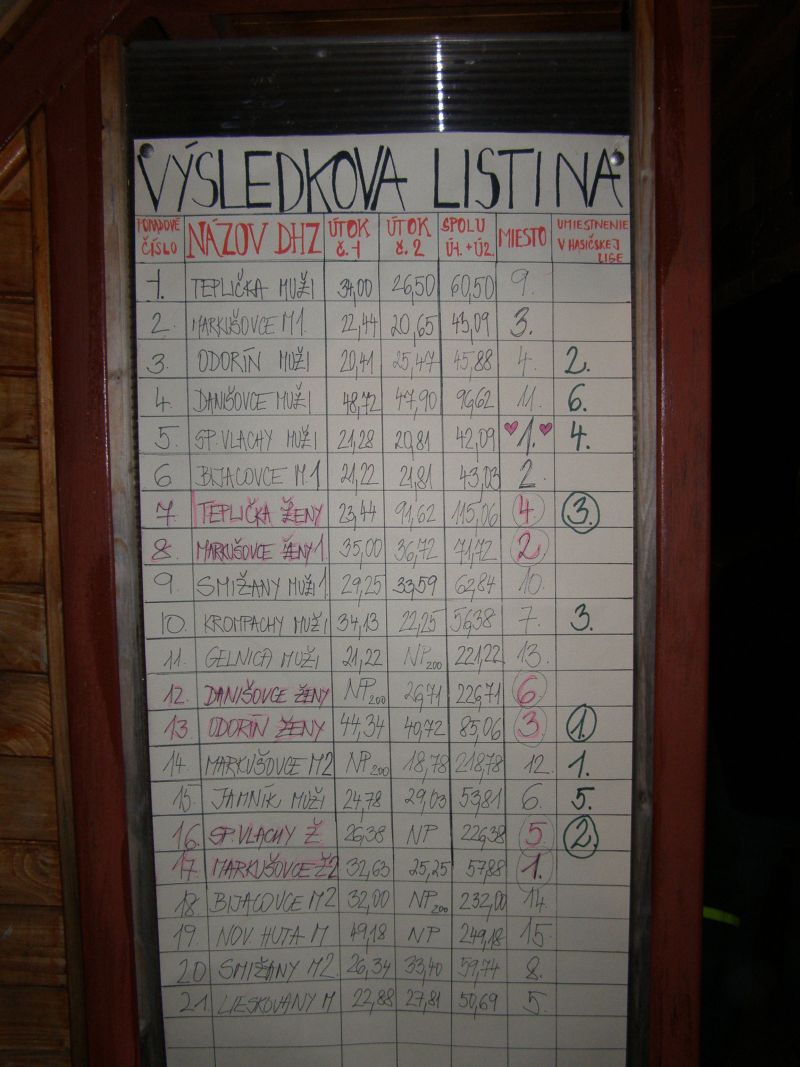 VÝSLEDKOVA LISTINA
PORADOVÉ ČÍSLO NÁZOV DHZ ÚTOK č.1 ÚTOK č.2 SPOLU Ú1.+Ú2. MIESTO UMIESTNENIE V HASIČSKEJ LIGE
1. TEPLIČKA MUŽI 34,00 26,50 60,50 9.
2. MARKUŠOVCE M1. 22,44 20,65 43,09 3.
3. ODORÍN MUŽI 20,41 25,47 45,88 4. 2.
4. DANIŠOVCE MUŽI 48,72 47,90 96,62 11. 6.
5. SP.VLACHY MUŽI 21,28 20,81 42,09 1. 4.
6 BIJACOVCE M.1 21,22 21,81 43,03 2.
7. TEPLIČKA ŽENY 23,44 91,62 115,06 4. 3.
8. MARKUŠOVCE ŽENY 1 35,00 36,72 71,72 2
9. SMIŽANY MUŽI 1 29,25 33,59 62,84 10.
10. KROMPACHY MUŽI 34,13 22,25 56,38 7. 3.
11. GELNICA MUŽI 21,22 NP200 221,22 13.
12. DANIŠOVCE ŽENY NP200 26,71 226,71 6
13. ODORÍN ŽENY 44,34 40,72 85,06 3 1.
14. MARKUŠOVCE M2 NP200 18,78 218,78 12. 1.
15. JAMNÍK MUŽI 24,78 29,03 53,81 6. 5.
16. SP.VLACHY Ž 26,38 NP 226,38 5 2.
17. MARKUŠOVCE Ž2 32,63 25,25 57,88 1.
18. BIJACOVCE M2 32,00 NP200 232,00 14.
19. NOV. HUTA M 49,18 NP 249,18 15.
20 SMIŽANY M2. 26,34 33,40 59,74 8.
21. LIESKOVANY M 22,88 27,81 50,69 5.